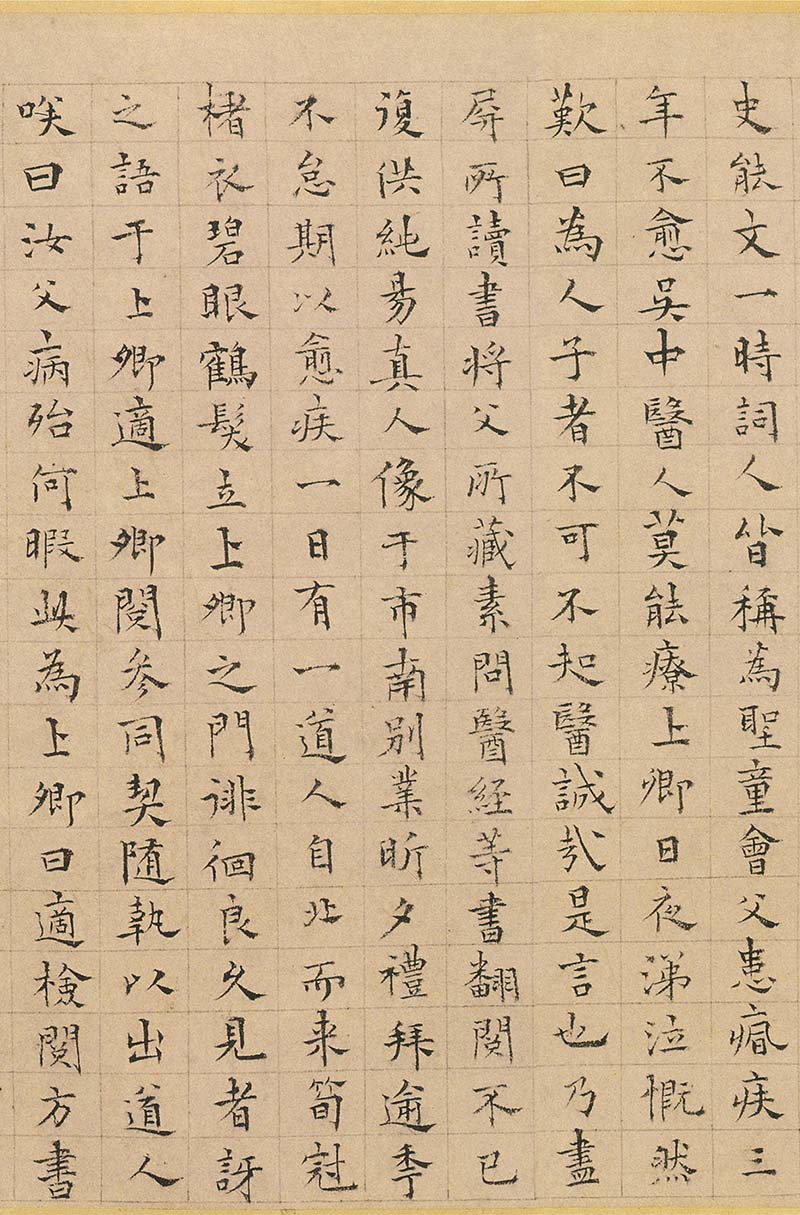 史能文一時詞人皆稱為聖童會父患痼疾三
年不愈吳中醫人莫能療上卿日夜涕泣慨然
歎曰為人子者不可不知醫誠哉是言也乃盡
屏所讀書将父所藏素問醫経等書翻閱不已
復供純昜真人像于市南別業昕夕禮拜逾秊
不怠期以愈疾一日有一道人自北而来筍冠
楮衣碧眼鶴髮立上卿之門誹徊良久見者訝
之語于上卿適上卿閱叅同契随執以出道人
唉曰汝父病殆何暇此為上卿曰適檢閱方書